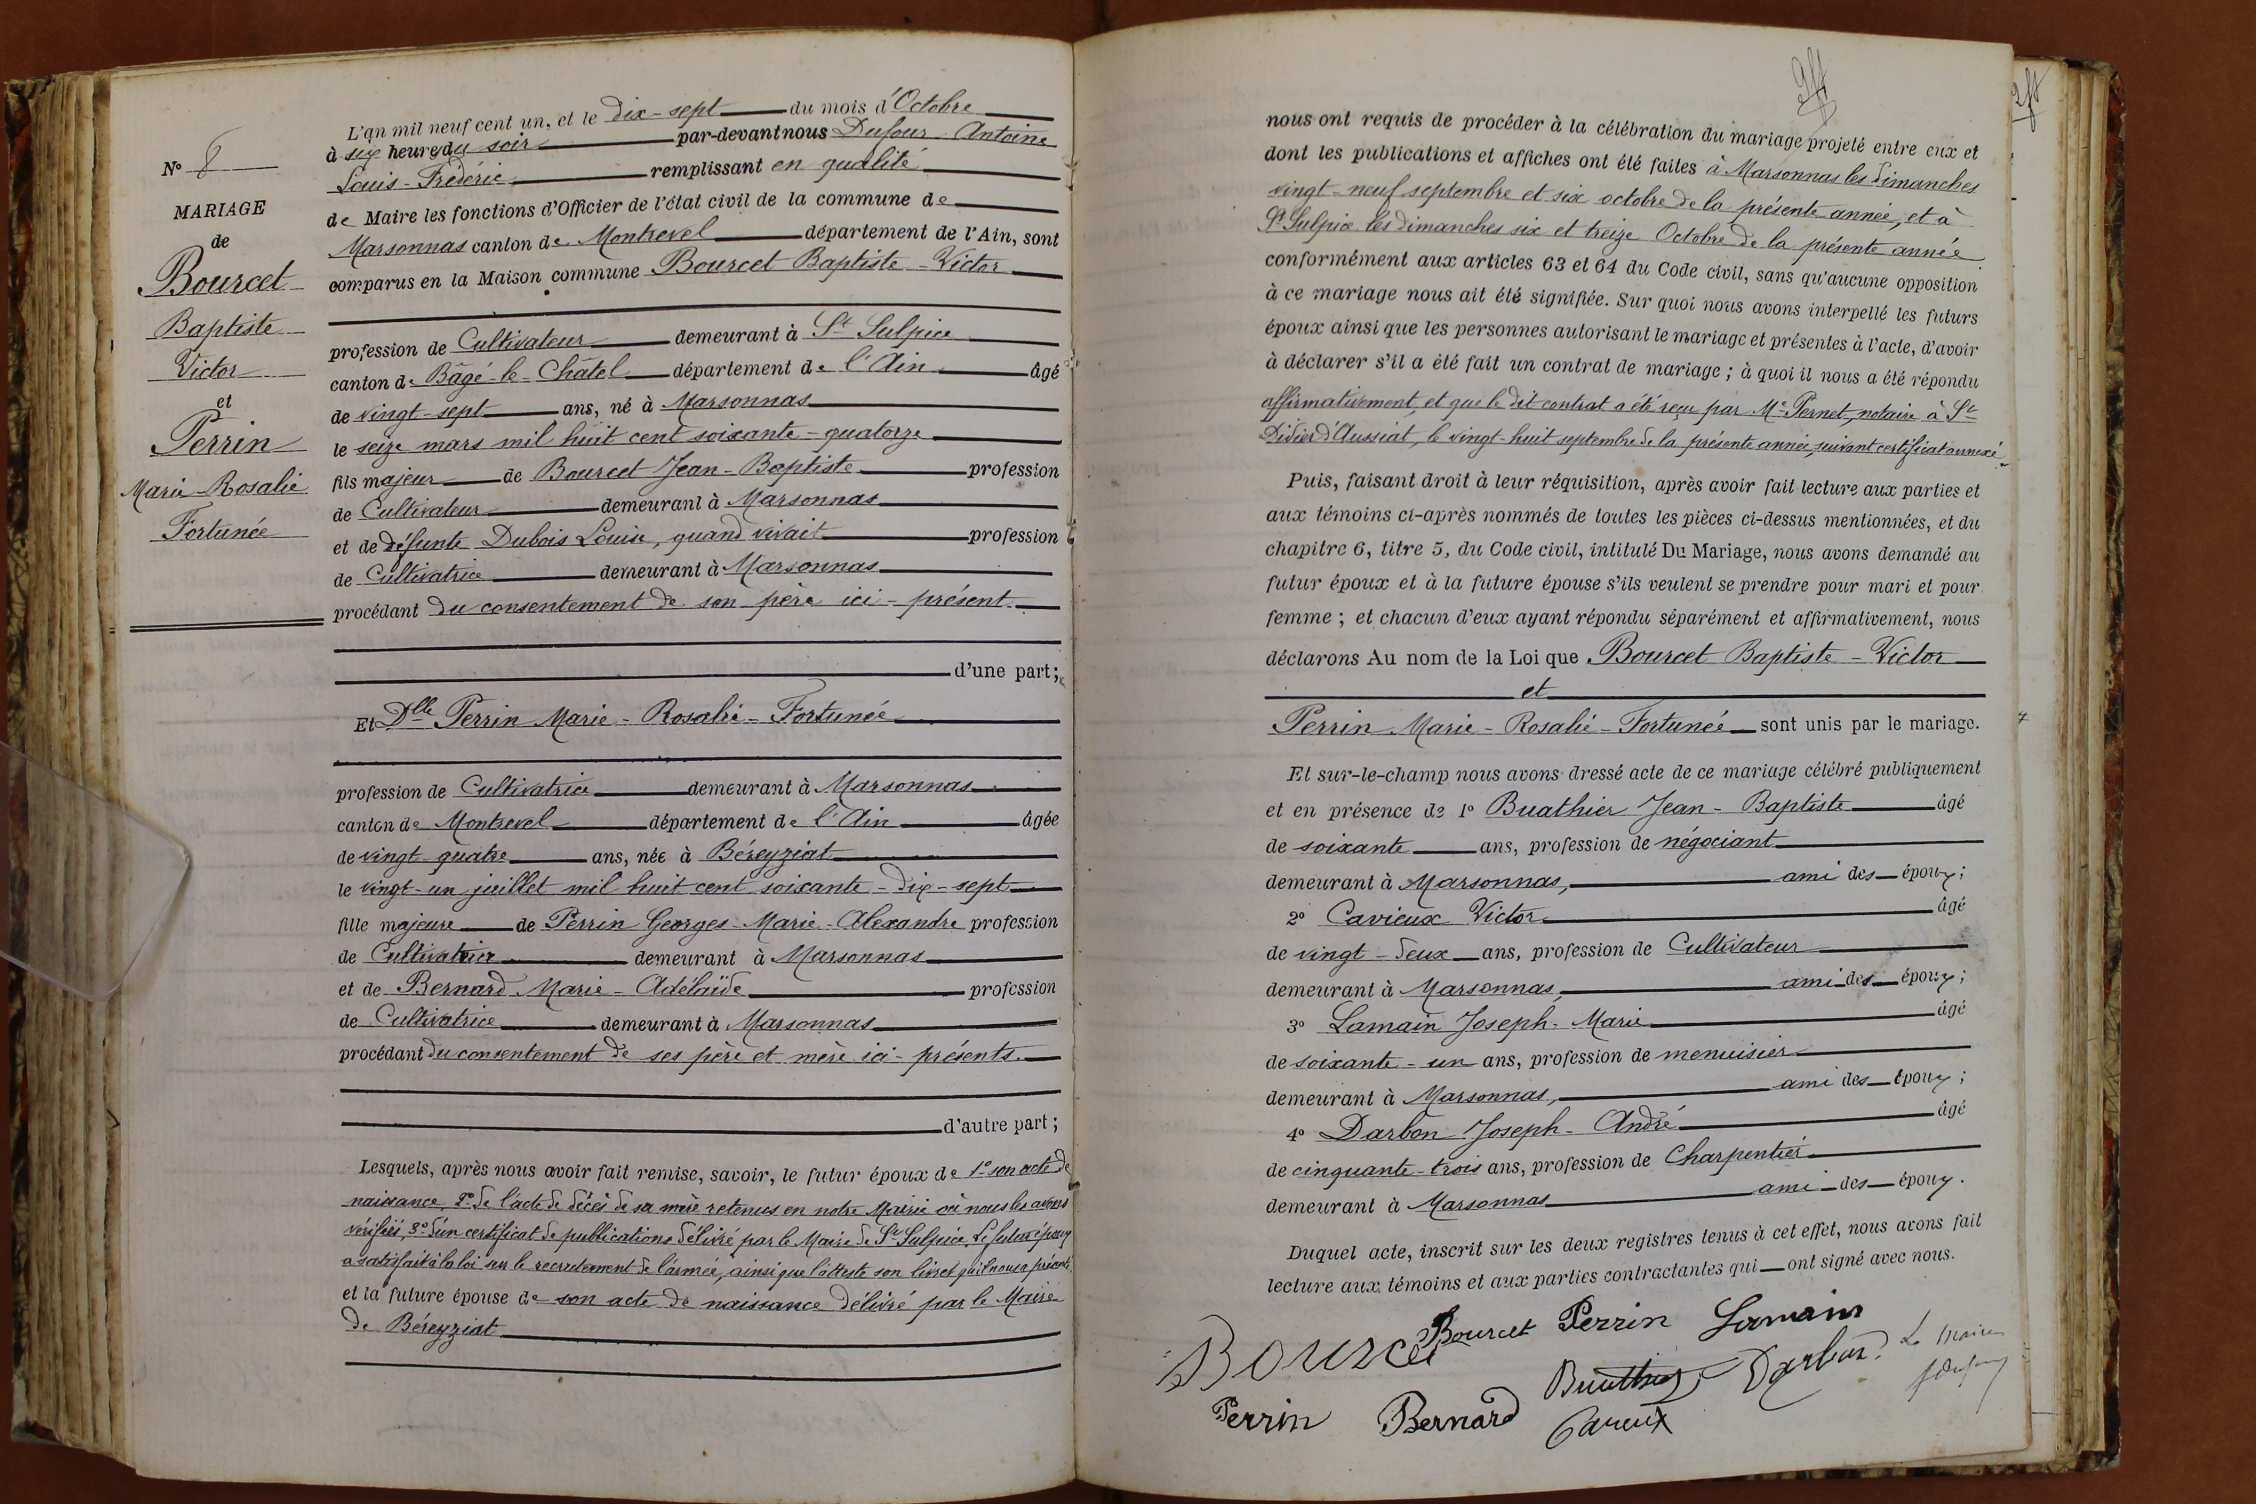 N° 8
MARIAGE
de
Bourcet
Baptiste
Victor
et
Perrin
Marie-Rosalie
Fortunée
L'an mil neuf cent un, et le dix-sept du mois d'Octobre
à six heures du soir par-devant nous Dufour Antoine
Louis-Frédéric remplissant en qualité
de Maire les fonctions d'Officier de l'état civil de la commune de
Marsonnas canton de Montrevel département de l'Ain, sont
comparus en la Maison commune Bourcet Baptiste-Victor
profession de Cultivateur demeurant à St Sulpice
canton de Bâgé-le-Châtel département de l'Ain âgé
de vingt-sept ans, né à Marsonnas
le seize mars mil huit cent soixante-quatorze
fils majeur de Bourcet Jean-Baptiste profession
de Cultivateur demeurant à Marsonnas
et de défunte Dubois Louise, quand vivait profession
de Cultivatrice demeurant à Marsonnas
procédant du consentement de son père ici-présent.
d'une part;
Et Dlle Perrin Marie-Rosalie-Fortunée
profession de Cultivatrice demeurant à Marsonnas
canton de Montrevel département de l'Ain âgée
de vingt quatre ans, née à Béreyziat
le vingt-un juillet mil huit cent soixante-dix-sept
fille majeure de Perrin Georges-Marie-Alexandre profession
de Cultivateur demeurant à Marsonnas
et de Bernard Marie-Adélaïde profession
de Cultivatrice demeurant à Marsonnas
procédant du consentement de ses père et mère ici-présents.
d'autre part;
Lesquels, après nous avoir fait remise, savoir, le futur époux de 1° son acte de
naissance, 2° de l'acte de décès de sa mère retenus en notre Mairie où nous les avons
vérifiés, 3° d'un certificat de publications délivré par le Maire de St Sulpice. Le futur époux
a satisfait à la loi sur le recrutement de l'armée, ainsi que l'atteste son livret qu'il nous a présenté.
et la future épouse de son acte de naissance délivré par le Maire
de Béreyziat
nous ont requis de procéder à la célébration du mariage projeté entre eux et
dont les publications et affiches ont été faites à Marsonnas les dimanches
vingt-neuf septembre et six octobre de la présente année, et à
St Sulpice les dimanches six et treize Octobre de la présente année
conformément aux articles 63 et 64 du Code civil, sans qu'aucune opposition
à ce mariage nous ait été signifiée. Sur quoi nous avons interpellé les futurs
époux ainsi que les personnes autorisant le mariage et présentes à l'acte, d'avoir
à déclarer s'il a été fait un contrat de mariage; à quoi il nous a été répondu
affirmativement, et que le dit contrat a été reçu par Me Pernet, notaire à St
Didier d'Aussiat, le vingt-huit septembre de la présente année, suivant certificat annexé.
Puis, faisant droit à leur réquisition, après avoir fait lecture aux parties et
aux témoins ci-après nommés de toutes les pièces ci-dessus mentionnées, et du
chapitre 6, titre 5, du Code civil, intitulé Du Mariage, nous avons demandé au
futur époux et à la future épouse s'ils veulent se prendre pour mari et pour
femme; et chacun d'eux ayant répondu séparément et affirmativement, nous
déclarons Au nom de la Loi que Bourcet Baptiste-Victor
et
Perrin Marie-Rosalie-Fortunée sont unis par le mariage.
Et sur-le-champ nous avons dressé acte de ce mariage célébré publiquement
et en présence de 1° Buathier Jean-Baptiste âgé
de soixante ans, profession de négociant
demeurant à Marsonnas, ami des époux;
2° Cavieux Victor âgé
de vingt-deux ans, profession de Cultivateur
demeurant à Marsonnas, ami des époux;
3° Lamain Joseph-Marie âgé
de soixante-un ans, profession de menuisier
demeurant à Marsonnas, ami des époux;
4° Darbon Joseph-André âgé
de cinquante-trois ans, profession de Charpentier
demeurant à Marsonnas ami des époux.
Duquel acte, inscrit sur les deux registres tenus à cet effet, nous avons fait
lecture aux témoins et aux parties contractantes qui ont signé avec nous.
Bourcet Bourcet Perrin Lamain
Buathier Darbon Le Maire
Perrin Bernard Cavieux